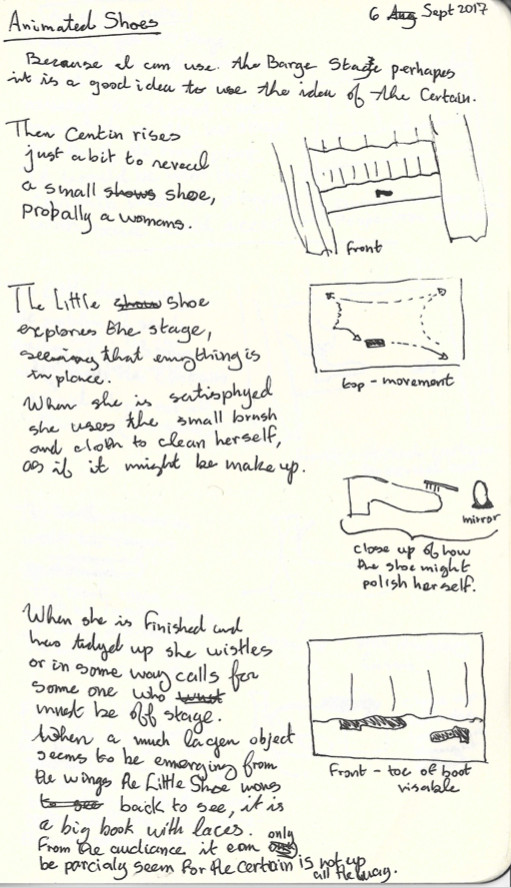 Animated Shoes
6 Aug Sept 2017
Because I can use the Barge Stage perhapes
it is a good idea to use the idea of the Certain.
Then Centin rises
just a bit to reveal
a small shows shoe,
Probally a womans.
Front
The Little show shoe
explores the stage,
seeing that enything is
in place.
When she is satisphyed
she uses the small brush
and cloth to clean herself,
as if it might be make up.
top - movement
mirror
close up of how
the shoe might
polish herself.
When she is finished and
has tidyed up she wistles
or in some way calls for
some one who must
must be off stage.
When a much lagen object
seems to be emerging from
the wings the Little Shoe movs
to see back to see, it is
a big book with laces.
From the audiance it can only
be parcialy seem for the certain is not up
all the way.
Front - toe of boot
visable